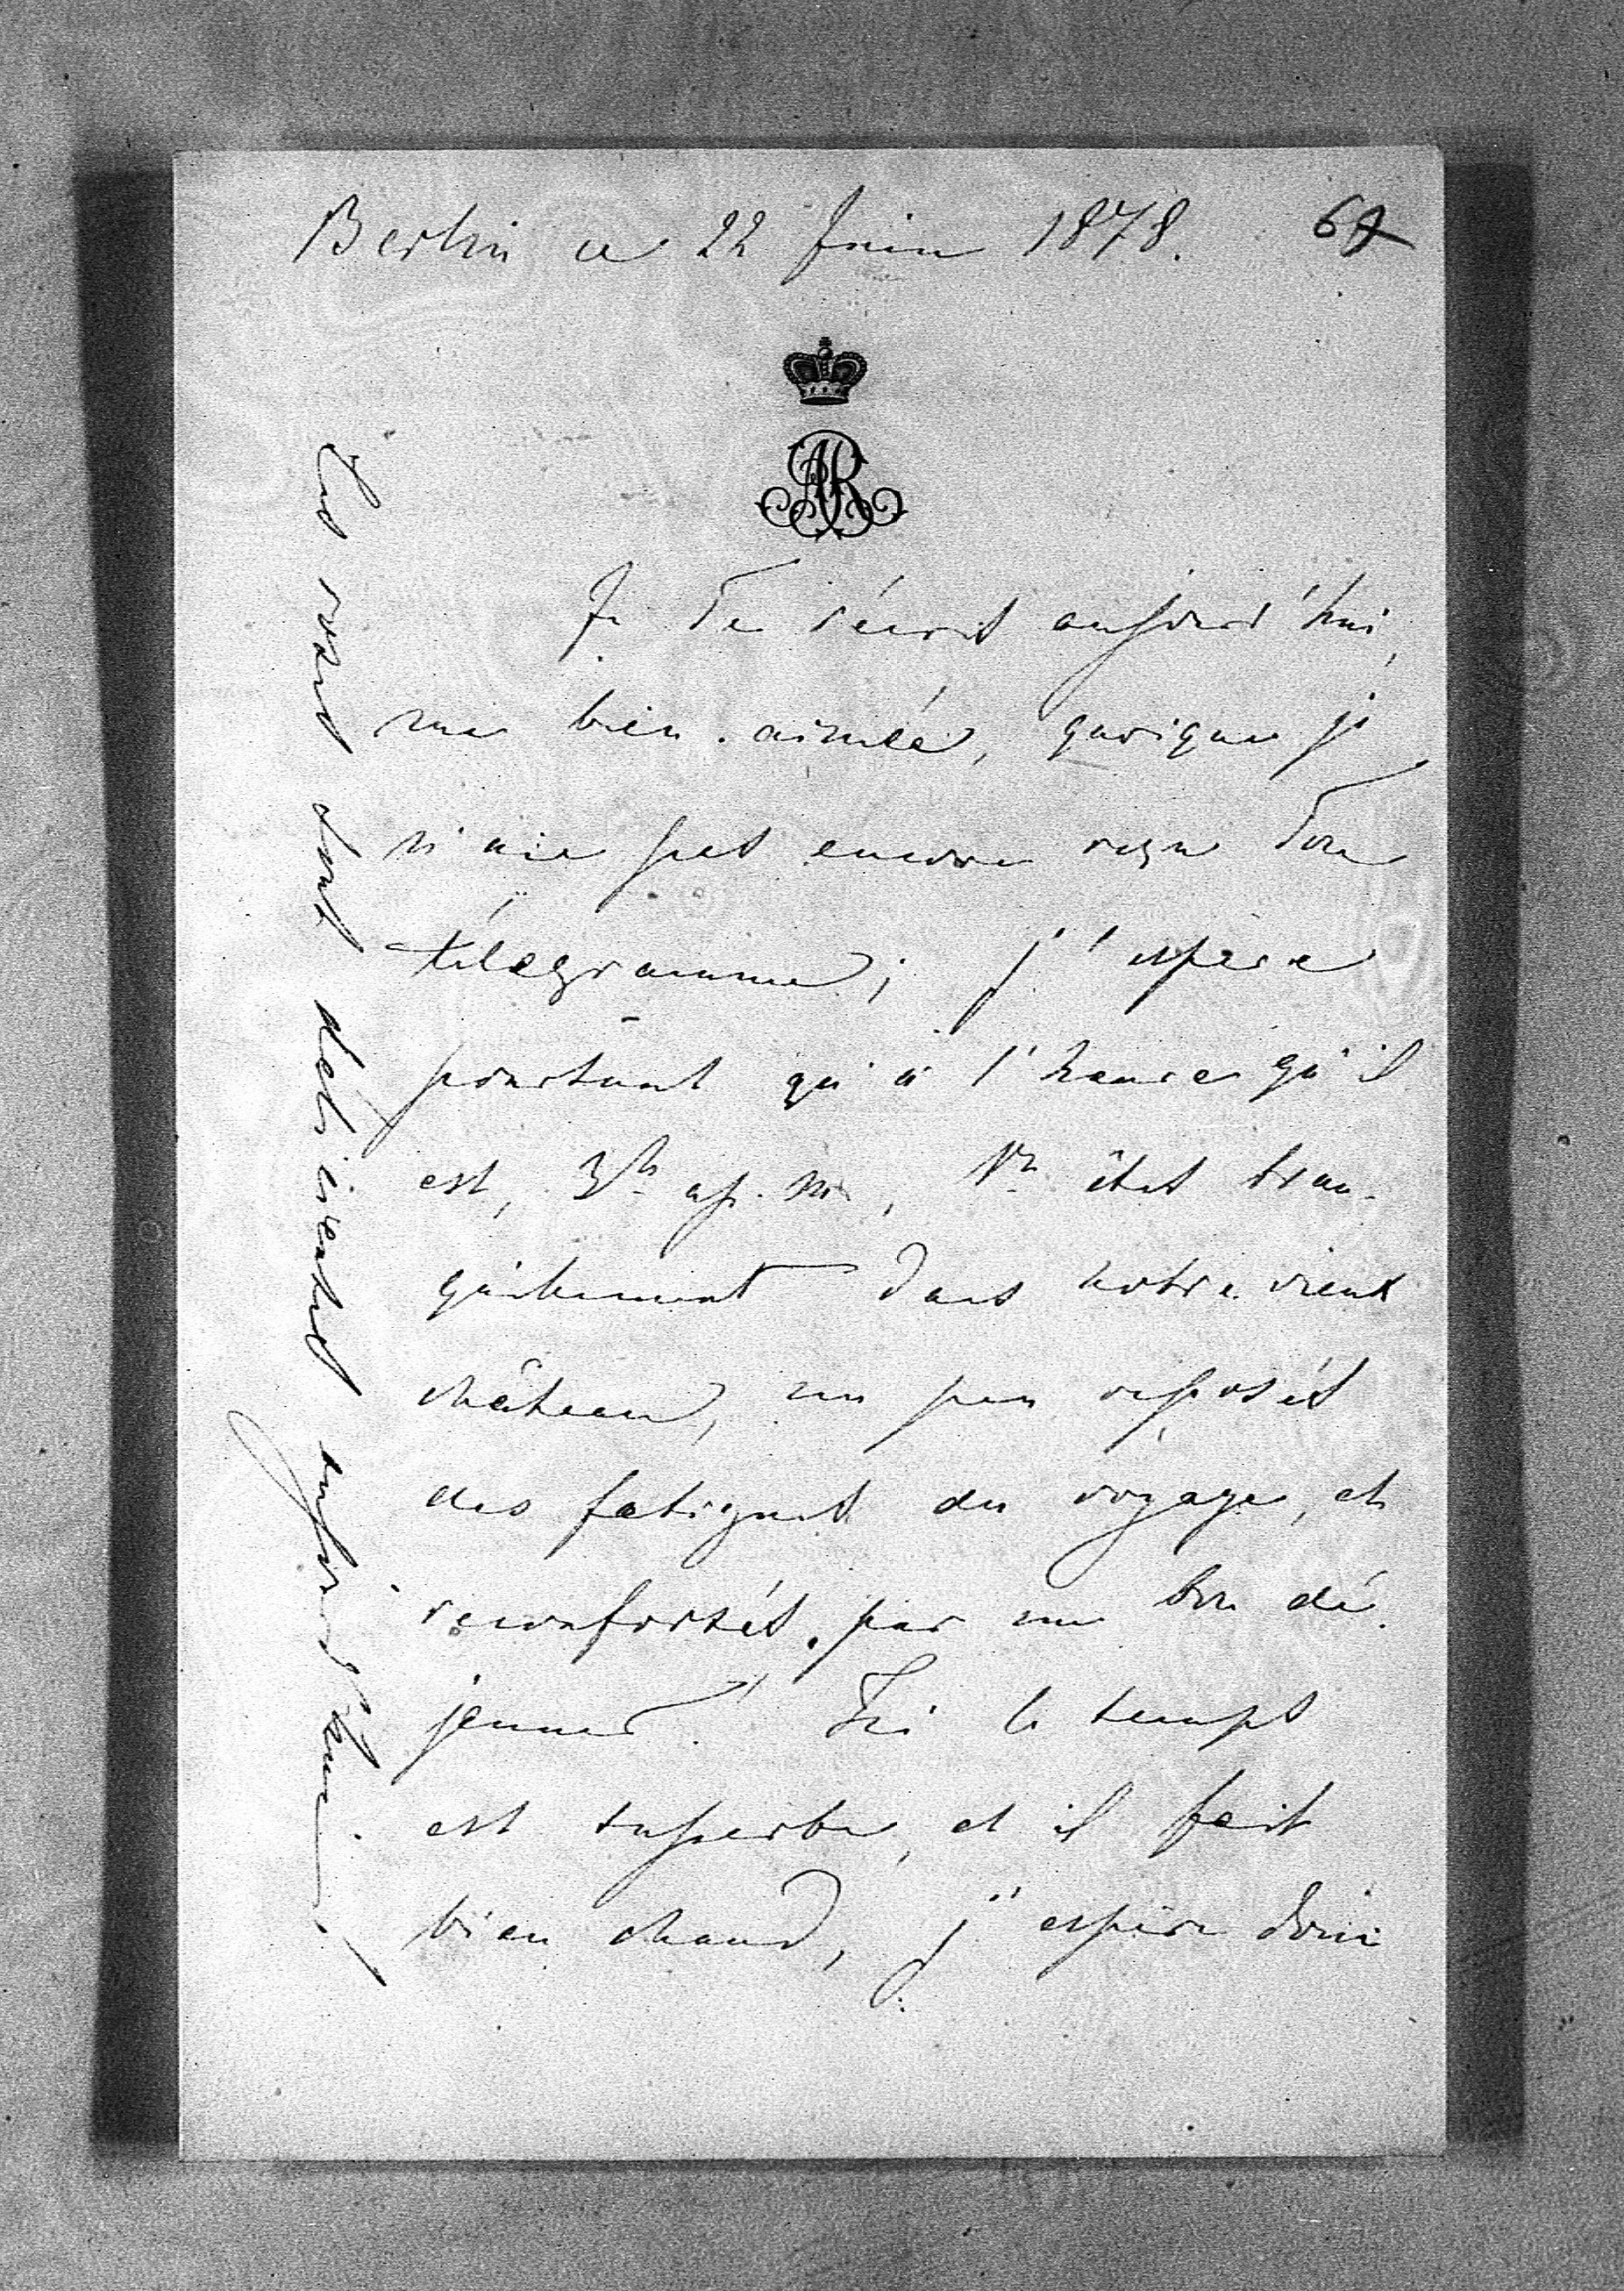 Berlin ce 22 Juin 1878. 67
AR
Je Te récris aujourd'hui,
ma bien-aimée, quoique je
n'aie pas encore reçu Ton
télégramme; j'espère
pourtant qu'à l'heure qu'il
est, 3h ap. m., Vs êtes tran-
quillement dans notre vieux
château, un peu reposés
des fatigues du voyage, et
reconfortés par un bon dé-
jeuner. Ici le temps
est superbe, et il fait
bien chaud, j'espère donc
Les roses sont delicientes aujourd'hui!